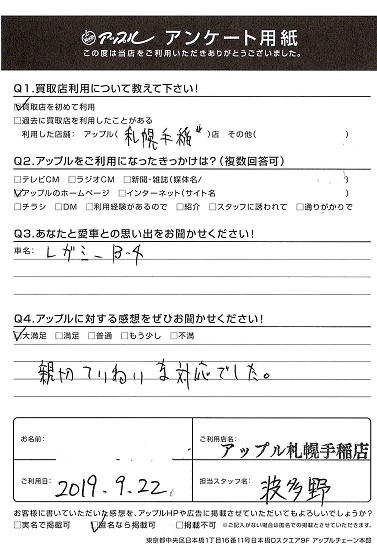 アップル アンケート用紙
この度は当店をご利用いただきありがとうございました。
Q1.買取店利用について教えて下さい!
☑買取店を初めて利用
□過去に買取店を利用したことがある
利用した店舗: アップル( 札幌手稲 )店 その他( )
Q2.アップルをご利用になったきっかけは?(複数回答可)
□テレビCM □ラジオCM □新聞・雑誌(媒体名/ )
☑アップルのホームページ □インターネット(サイト名 )
□チラシ □DM □利用経験があるので □紹介 □スタッフに誘われて □通りがかりで
Q3.あなたと愛車との思い出をお聞かせください!
車名: レガシーB-4
Q4.アップルに対する感想をぜひお聞かせください!
☑大満足 □満足 □普通 □もう少し □不満
親切ていねいな対応でした。
お名前:
ご利用店名:
アップル札幌手稲店
ご利用日: 2019.9.22
担当スタッフ名: 波多野
お客様に書いていただいた感想を、アップルHPや広告に掲載させていただいてもよろしいでしょうか?
□実名で掲載可 ☑匿名なら掲載可 □掲載不可 ※ご記入がない場合は匿名での掲載とさせていただきます。
東京都中央区日本橋1丁目16番11号日本橋Dスクエア9F アップルチェーン本部